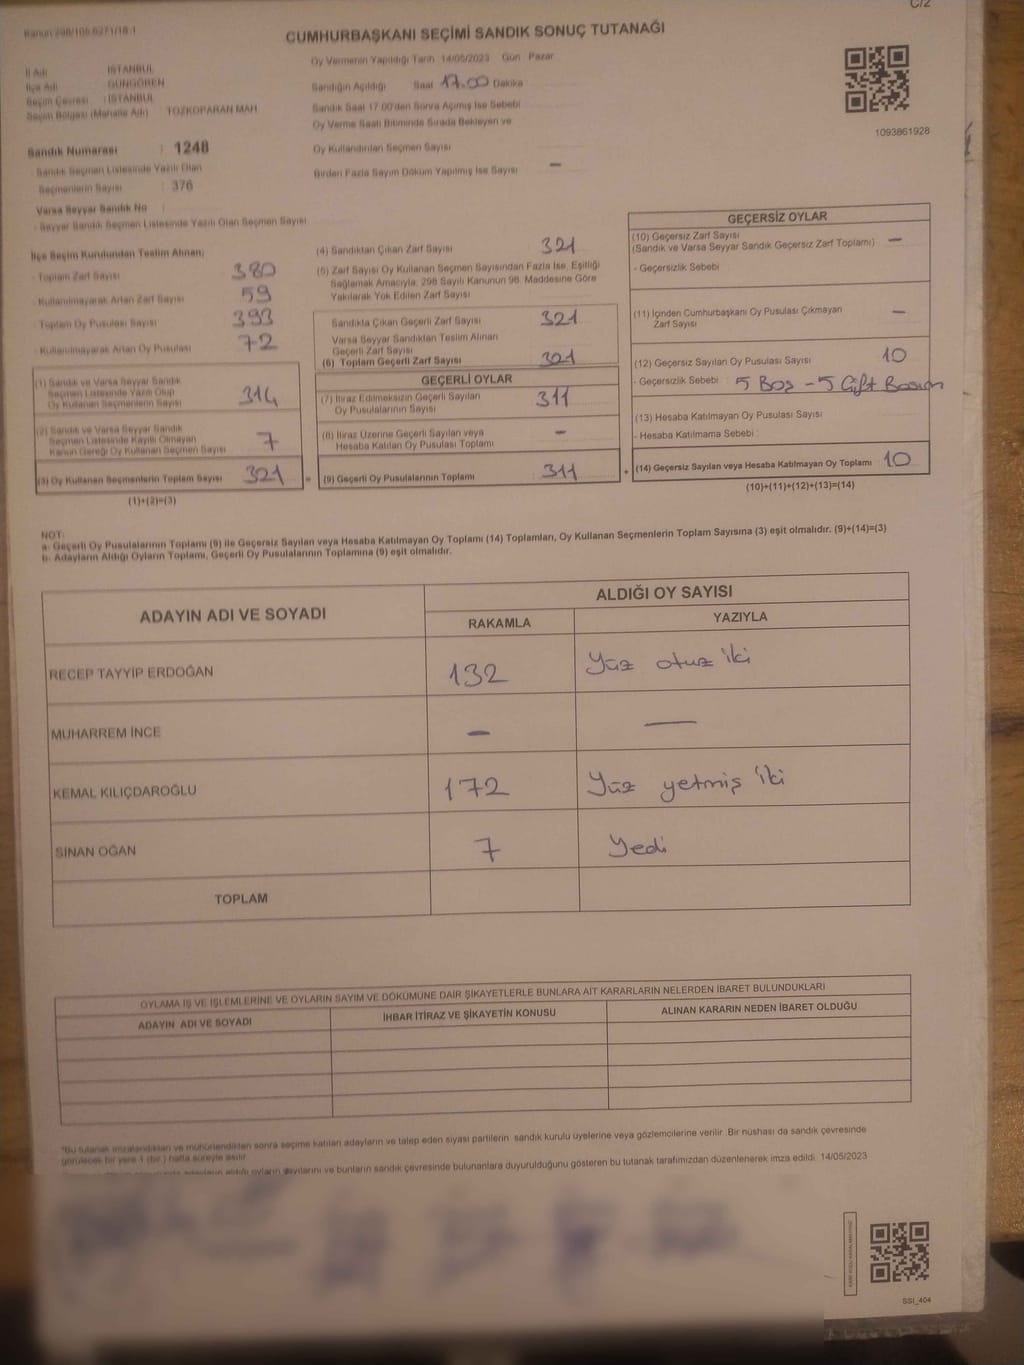 C/2
Kanun 298/105 6271/18-1
CUMHURBAŞKANI SEÇİMİ SANDIK SONUÇ TUTANAĞI
Oy Vermenin Yapıldığı Tarih 14/05/2023 Gün Pazar
İl Adı İSTANBUL
İlçe Adı GÜNGÖREN
Seçim Çevresi : İSTANBUL
Seçim Bölgesi (Mahalle Adı) TOZKOPARAN MAH
Sandığın Açıldığı Saat 17.00 Dakika
Sandık Saat 17.00'den Sonra Açılmış İse Sebebi
Oy Verme Saati Bitiminde Sırada Bekleyen ve
Oy Kullandırılan Seçmen Sayısı
Birden Fazla Sayım Döküm Yapılmış İse Sayısı —
1093861928
Sandık Numarası : 1248
Sandık Seçmen Listesinde Yazılı Olan
Seçmenlerin Sayısı : 376
Varsa Seyyar Sandık No
- Seyyar Sandık Seçmen Listesinde Yazılı Olan Seçmen Sayısı
İlçe Seçim Kurulundan Teslim Alınan;
- Toplam Zarf Sayısı 380
- Kullanılmayarak Artan Zarf Sayısı 59
- Toplam Oy Pusulası Sayısı 393
- Kullanılmayarak Artan Oy Pusulası 72
(1) Sandık ve Varsa Seyyar Sandık
Seçmen Listesinde Yazılı Olup
Oy Kullanan Seçmenlerin Sayısı 314
(2) Sandık ve Varsa Seyyar Sandık
Seçmen Listesinde Kayıtlı Olmayan
Kanun Gereği Oy Kullanan Seçmen Sayısı 7
(3) Oy Kullanan Seçmenlerin Toplam Sayısı 321
(1)+(2)=(3)
(4) Sandıktan Çıkan Zarf Sayısı 321
(5) Zarf Sayısı Oy Kullanan Seçmen Sayısından Fazla İse, Eşitliği
Sağlamak Amacıyla, 298 Sayılı Kanunun 98. Maddesine Göre
Yakılarak Yok Edilen Zarf Sayısı
Sandıkta Çıkan Geçerli Zarf Sayısı 321
Varsa Seyyar Sandıktan Teslim Alınan
Geçerli Zarf Sayısı
(6) Toplam Geçerli Zarf Sayısı 321
GEÇERLİ OYLAR
(7) İtiraz Edilmeksizin Geçerli Sayılan
Oy Pusulalarının Sayısı 311
(8) İtiraz Üzerine Geçerli Sayılan veya
Hesaba Katılan Oy Pusulası Toplamı —
= (9) Geçerli Oy Pusulalarının Toplamı 311 +
GEÇERSİZ OYLAR
(10) Geçersiz Zarf Sayısı
(Sandık ve Varsa Seyyar Sandık Geçersiz Zarf Toplamı) —
- Geçersizlik Sebebi
(11) İçinden Cumhurbaşkanı Oy Pusulası Çıkmayan
Zarf Sayısı —
(12) Geçersiz Sayılan Oy Pusulası Sayısı 10
- Geçersizlik Sebebi : 5 Boş - 5 Çift Basım
(13) Hesaba Katılmayan Oy Pusulası Sayısı
- Hesaba Katılmama Sebebi :
(14) Geçersiz Sayılan veya Hesaba Katılmayan Oy Toplamı 10
(10)+(11)+(12)+(13)=(14)
NOT:
a- Geçerli Oy Pusulalarının Toplamı (9) ile Geçersiz Sayılan veya Hesaba Katılmayan Oy Toplamı (14) Toplamları, Oy Kullanan Seçmenlerin Toplam Sayısına (3) eşit olmalıdır. (9)+(14)=(3)
b- Adayların Aldığı Oyların Toplamı, Geçerli Oy Pusulalarının Toplamına (9) eşit olmalıdır.
ADAYIN ADI VE SOYADI
ALDIĞI OY SAYISI
RAKAMLA YAZIYLA
RECEP TAYYİP ERDOĞAN 132 Yüz otuz iki
MUHARREM İNCE — —
KEMAL KILIÇDAROĞLU 172 Yüz yetmiş iki
SİNAN OĞAN 7 Yedi
TOPLAM
OYLAMA İŞ VE İŞLEMLERİNE VE OYLARIN SAYIM VE DÖKÜMÜNE DAİR ŞİKAYETLERLE BUNLARA AİT KARARLARIN NELERDEN İBARET BULUNDUKLARI
ADAYIN ADI VE SOYADI İHBAR İTİRAZ VE ŞİKAYETİN KONUSU ALINAN KARARIN NEDEN İBARET OLDUĞU
*Bu tutanak imzalandıktan ve mühürlendikten sonra seçime katılan adayların ve talep eden siyasi partilerin sandık kurulu üyelerine veya gözlemcilerine verilir. Bir nüshası da sandık çevresinde
görülecek bir yere 1 (bir) hafta süreyle asılır.
adayların aldığı oyların sayılarını ve bunların sandık çevresinde bulunanlara duyurulduğunu gösteren bu tutanak tarafımızdan düzenlenerek imza edildi. 14/05/2023
SSI_404